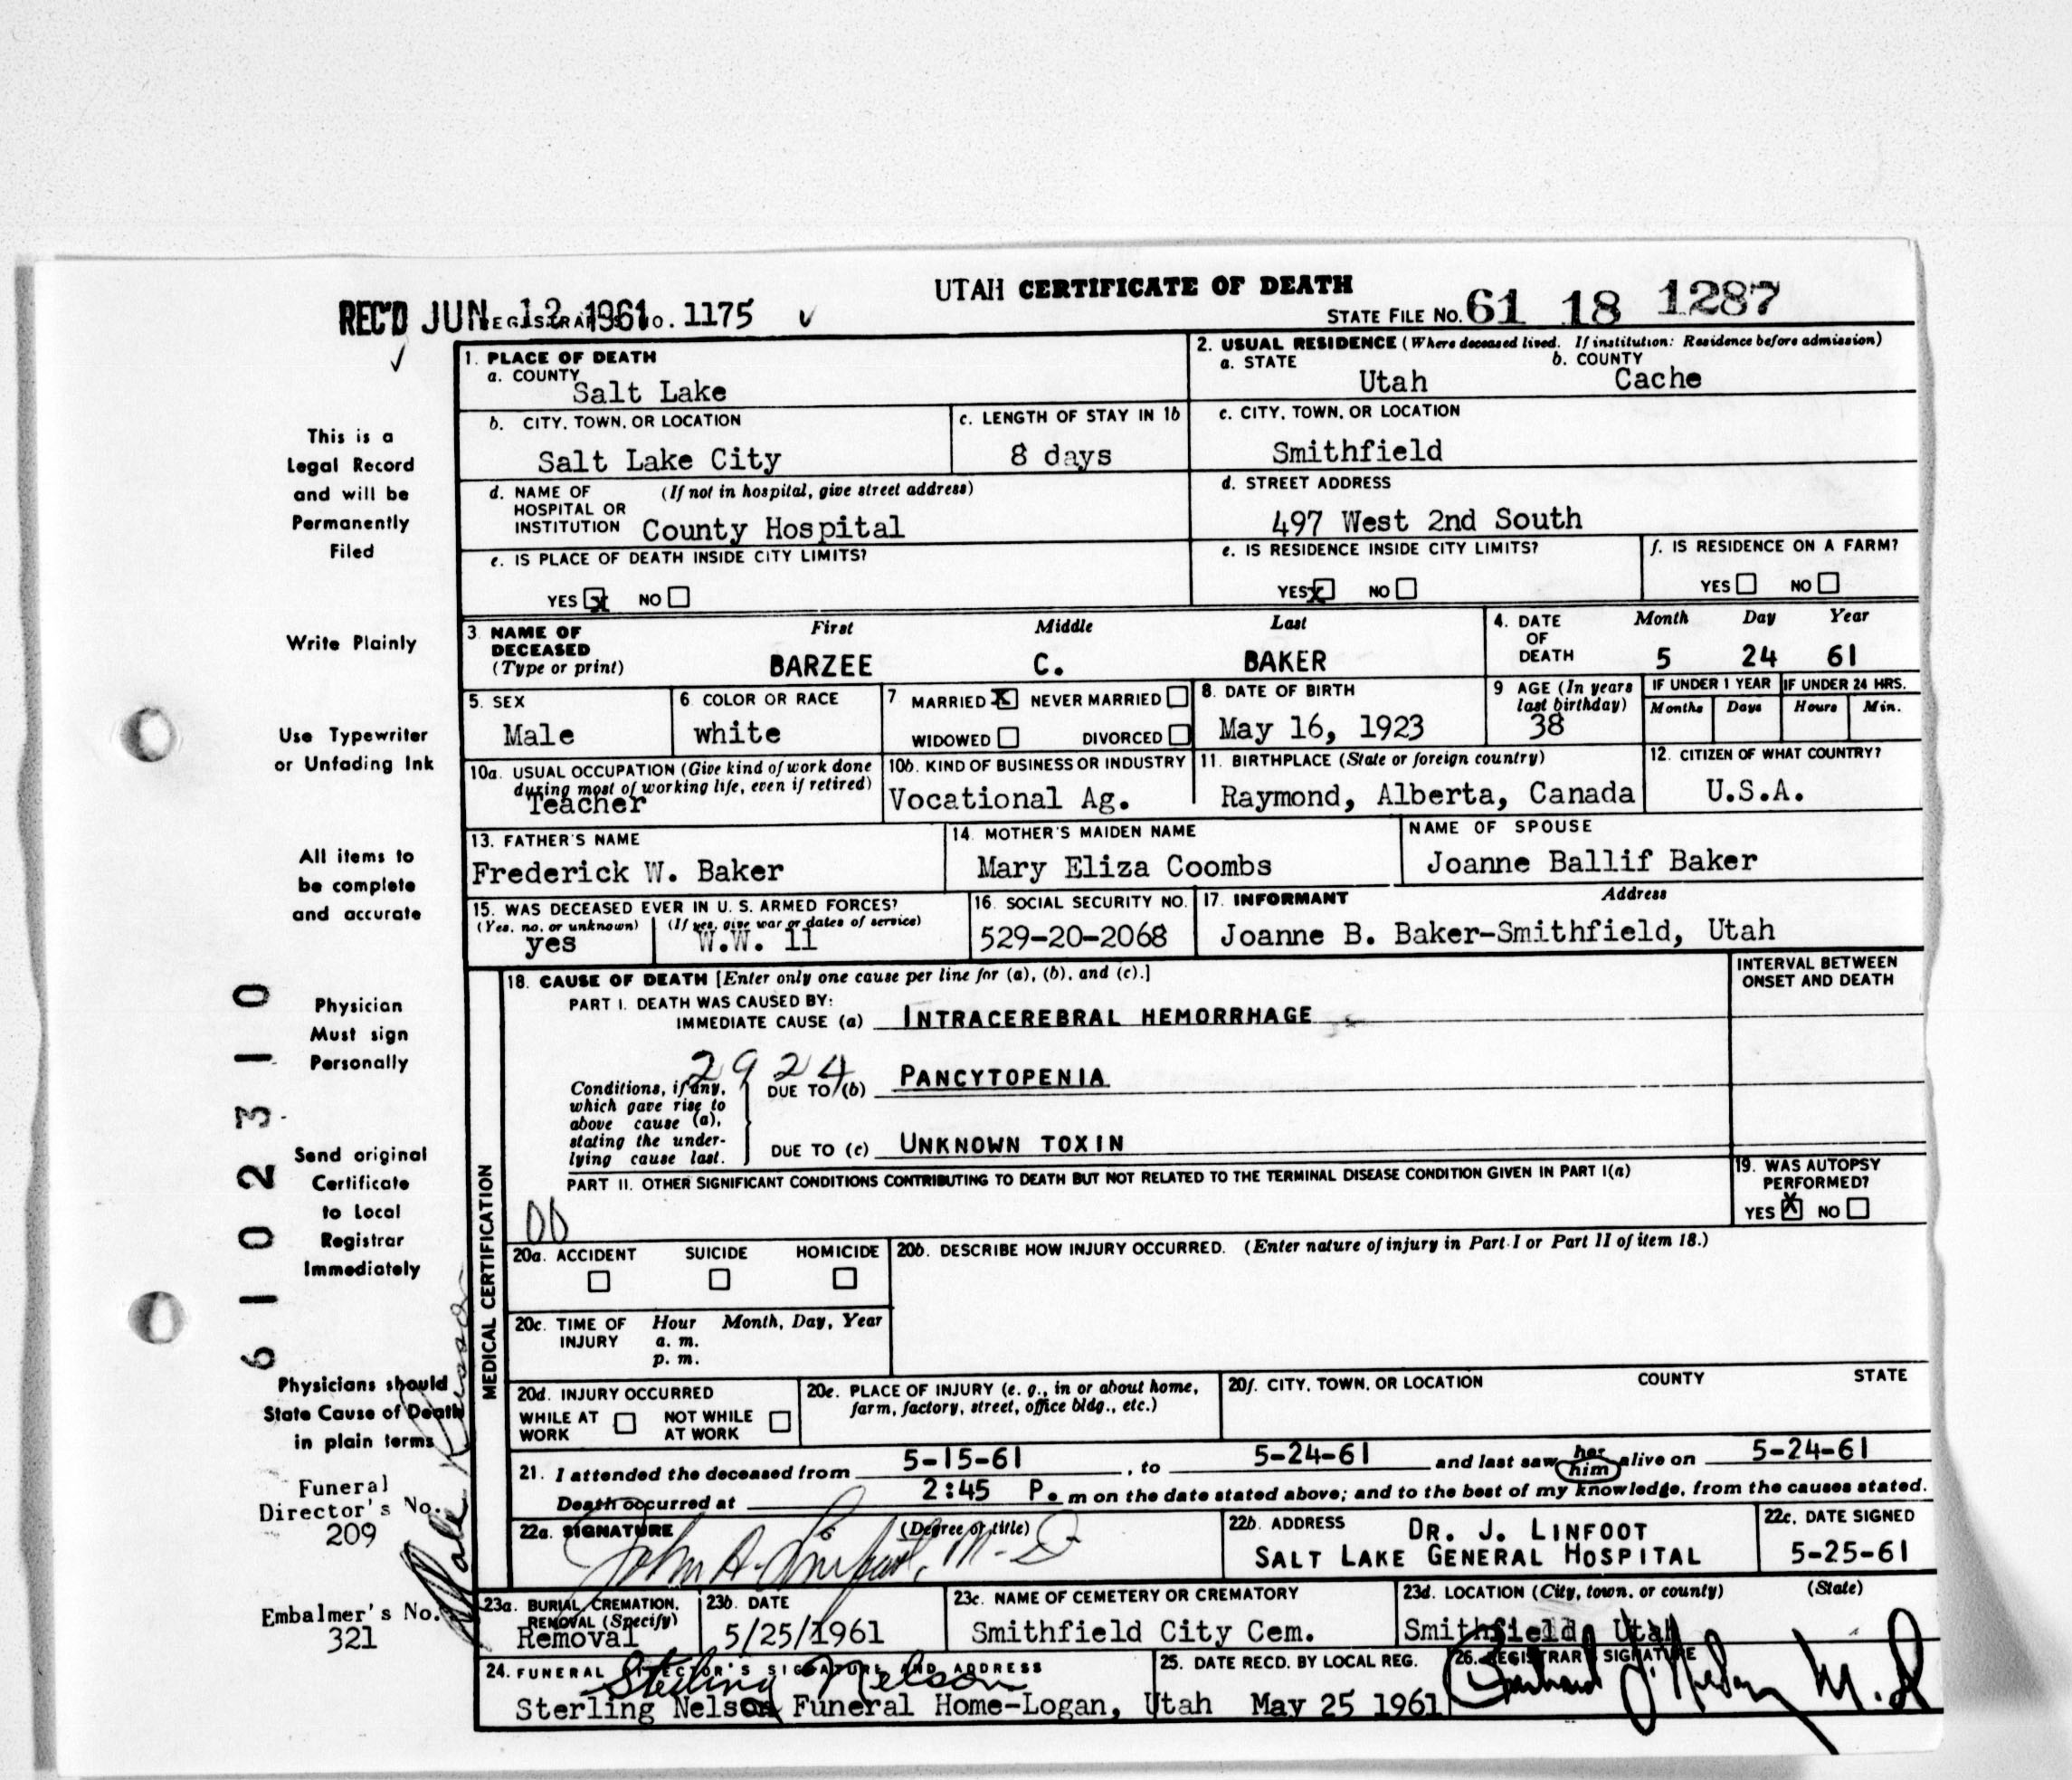 UTAH CERTIFICATE OF DEATH
REC'D JUN 12 1961 1175
STATE FILE NO. 61 18 1287
This is a
Legal Record
and will be
Permanently
Filed
Write Plainly
Use Typewriter
or Unfading Ink
All items to
be complete
and accurate
Physician
Must sign
Personally
Send original
Certificate
to Local
Registrar
Immediately
Physicians should
State Cause of Death
in plain terms
Funeral
Director's No.
209
Embalmer's No.
321
61 02310
1. PLACE OF DEATH
a. COUNTY
Salt Lake
b. CITY, TOWN, OR LOCATION
Salt Lake City
c. LENGTH OF STAY IN 1b
8 days
d. NAME OF HOSPITAL OR INSTITUTION (If not in hospital, give street address)
County Hospital
e. IS PLACE OF DEATH INSIDE CITY LIMITS?
YES x NO
2. USUAL RESIDENCE (Where deceased lived. If institution: Residence before admission)
a. STATE
Utah
b. COUNTY
Cache
c. CITY, TOWN, OR LOCATION
Smithfield
d. STREET ADDRESS
497 West 2nd South
e. IS RESIDENCE INSIDE CITY LIMITS?
YES x NO
f. IS RESIDENCE ON A FARM?
YES NO
3 NAME OF DECEASED (Type or print)
First Middle Last
BARZEE C. BAKER
4. DATE OF DEATH
Month Day Year
5 24 61
5. SEX
Male
6 COLOR OR RACE
white
7 MARRIED X NEVER MARRIED
WIDOWED DIVORCED
8. DATE OF BIRTH
May 16, 1923
9 AGE (In years last birthday)
38
IF UNDER 1 YEAR
Months Days
IF UNDER 24 HRS.
Hours Min.
10a. USUAL OCCUPATION (Give kind of work done during most of working life, even if retired)
Teacher
10b. KIND OF BUSINESS OR INDUSTRY
Vocational Ag.
11. BIRTHPLACE (State or foreign country)
Raymond, Alberta, Canada
12. CITIZEN OF WHAT COUNTRY?
U.S.A.
13. FATHER'S NAME
Frederick W. Baker
14. MOTHER'S MAIDEN NAME
Mary Eliza Coombs
NAME OF SPOUSE
Joanne Ballif Baker
15. WAS DECEASED EVER IN U. S. ARMED FORCES?
(Yes, no, or unknown) (If yes, give war or dates of service)
yes W.W. 11
16. SOCIAL SECURITY NO.
529-20-2068
17. INFORMANT Address
Joanne B. Baker-Smithfield, Utah
MEDICAL CERTIFICATION
18. CAUSE OF DEATH [Enter only one cause per line for (a), (b), and (c).]
INTERVAL BETWEEN ONSET AND DEATH
PART I. DEATH WAS CAUSED BY:
IMMEDIATE CAUSE (a) INTRACEREBRAL HEMORRHAGE
2924
Conditions, if any, which gave rise to above cause (a), stating the underlying cause last.
DUE TO (b) PANCYTOPENIA
DUE TO (c) UNKNOWN TOXIN
PART II. OTHER SIGNIFICANT CONDITIONS CONTRIBUTING TO DEATH BUT NOT RELATED TO THE TERMINAL DISEASE CONDITION GIVEN IN PART I(a)
00
19. WAS AUTOPSY PERFORMED?
YES X NO
20a. ACCIDENT SUICIDE HOMICIDE
20b. DESCRIBE HOW INJURY OCCURRED. (Enter nature of injury in Part I or Part II of item 18.)
20c. TIME OF INJURY
Hour Month, Day, Year
a. m.
p. m.
20d. INJURY OCCURRED
WHILE AT WORK NOT WHILE AT WORK
20e. PLACE OF INJURY (e. g., in or about home, farm, factory, street, office bldg., etc.)
20f. CITY, TOWN, OR LOCATION COUNTY STATE
21. I attended the deceased from 5-15-61, to 5-24-61 and last saw her him alive on 5-24-61
Death occurred at 2:45 P. m on the date stated above; and to the best of my knowledge, from the causes stated.
22a. SIGNATURE (Degree or title)
John A. Linfoot, M.D
22b. ADDRESS
DR. J. LINFOOT
SALT LAKE GENERAL HOSPITAL
22c. DATE SIGNED
5-25-61
23a. BURIAL, CREMATION, REMOVAL (Specify)
Removal
23b. DATE
5/25/1961
23c. NAME OF CEMETERY OR CREMATORY
Smithfield City Cem.
23d. LOCATION (City, town, or county) (State)
Smithfield, Utah
24. FUNERAL DIRECTOR'S SIGNATURE AND ADDRESS
Sterling Nelson
Sterling Nelson Funeral Home-Logan, Utah
25. DATE RECD. BY LOCAL REG.
May 25 1961
26. REGISTRAR'S SIGNATURE
M.D